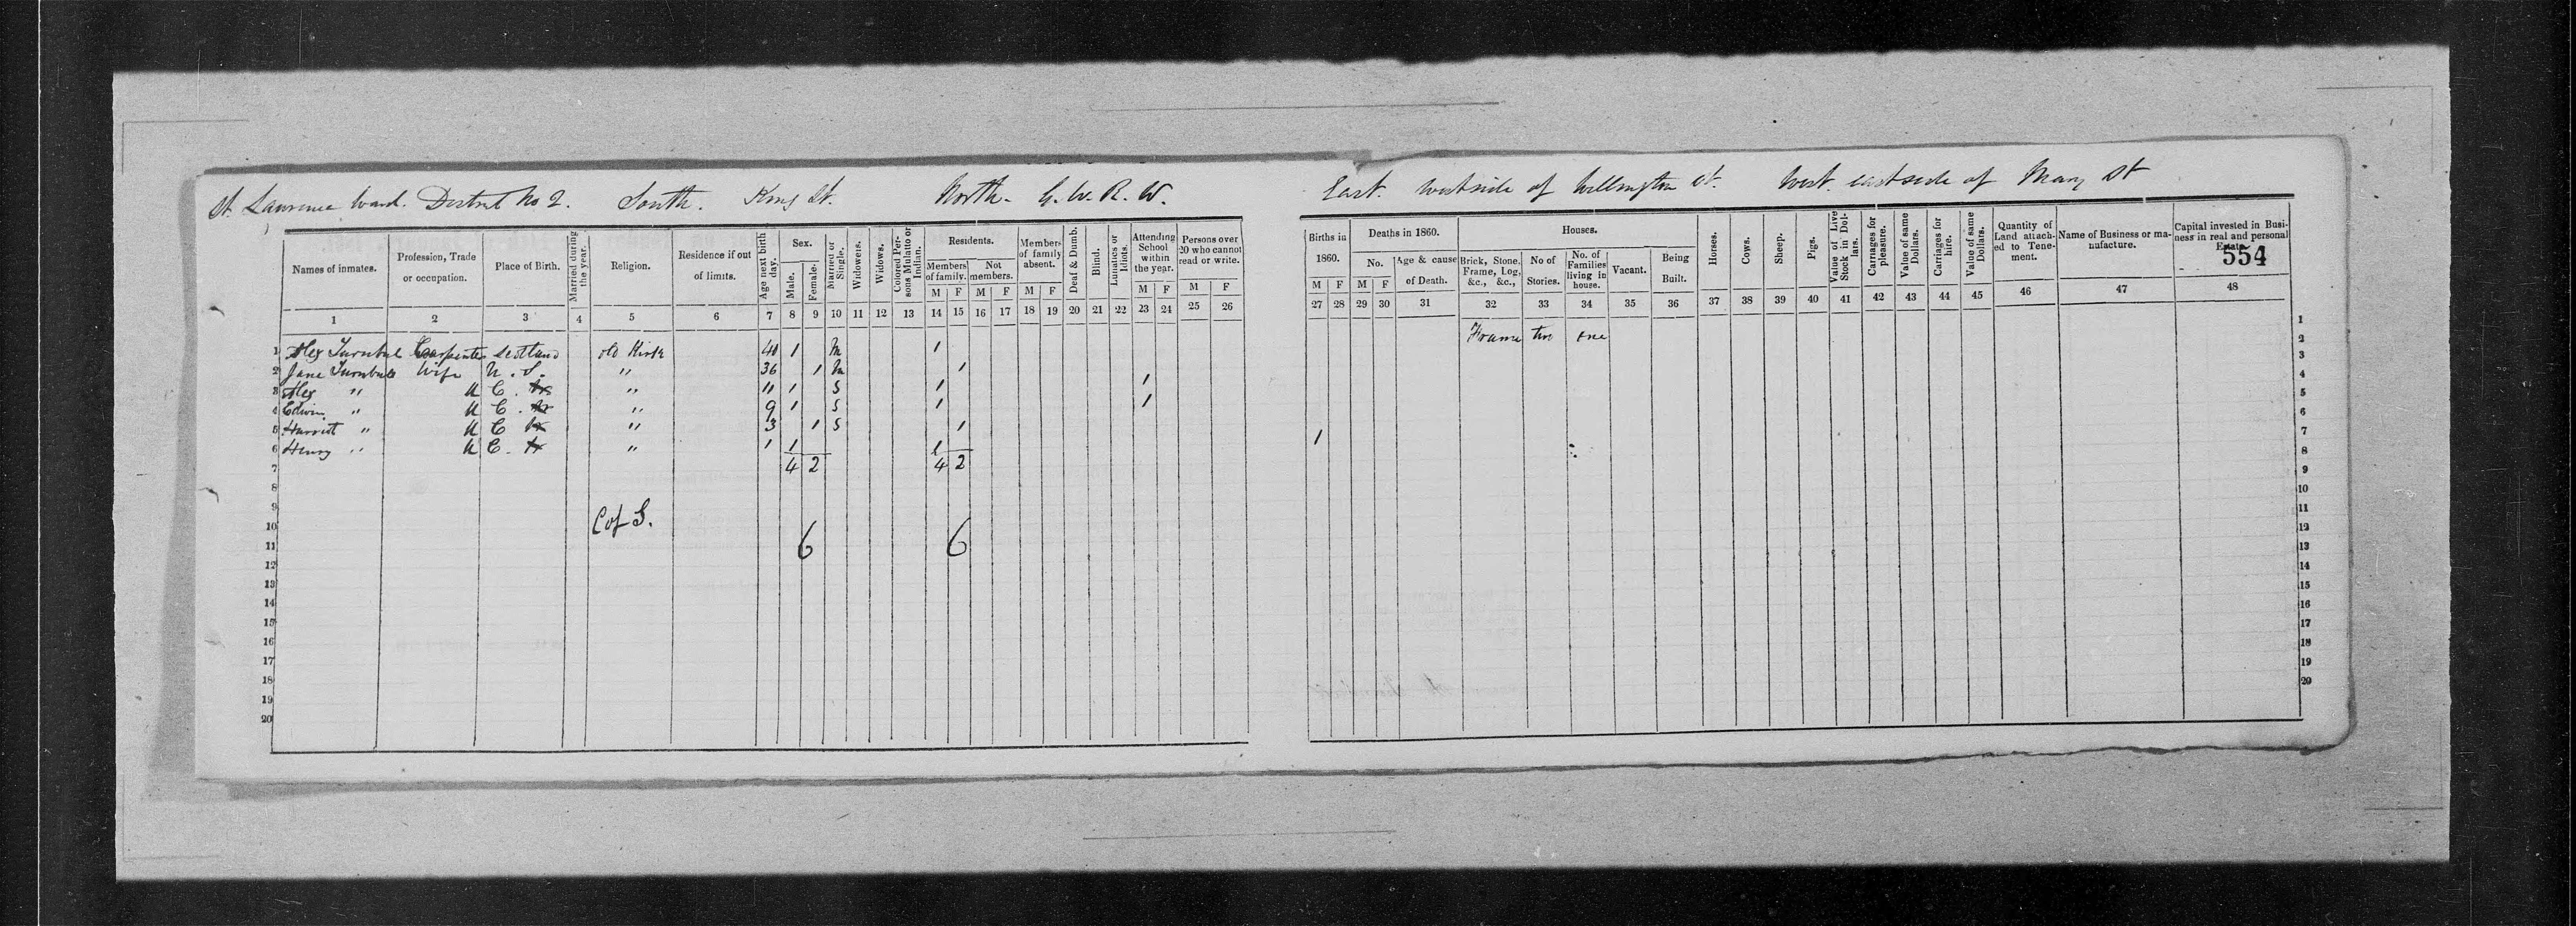 St. Lawrence Ward. District No 2. South. King St. North. G. W. R. W. East. westside of Wellington St. West. eastside of Mary St
Names of inmates. Profession, Trade or occupation. Place of Birth. Married during the year. Religion. Residence if out of limits. Age next birth day. Sex. Male. Female. Married or Single. Widowers. Widows. Colored Persons Mulatto or Indian. Residents. Members of family. Not members. M F M F Members of family absent. M F Deaf & Dumb. Blind. Lunatics or Idiots. Attending School within the year. M F Persons over 20 who cannot read or write. M F
Births in 1860. M F Deaths in 1860. No. M F Age & cause of Death. Houses. Brick, Stone, Frame, Log, &c., &c., No of Stories. No. of Families living in house. Vacant. Being Built. Horses. Cows. Sheep. Pigs. Value of Live Stock in Dollars. Carriages for pleasure. Value of same Dollars. Carriages for hire. Value of same Dollars. Quantity of Land attached to Tenement. Name of Business or manufacture. Capital invested in Business in real and personal Estate.
554
1 2 3 4 5 6 7 8 9 10 11 12 13 14 15 16 17 18 19 20 21 22 23 24 25 26
27 28 29 30 31 32 33 34 35 36 37 38 39 40 41 42 43 44 45 46 47 48
Frame two one 1
1 Alex Turnbul Carpenter Scotland old Kirk 40 1 M 1 2
2 Jane Turnbull Wife U. S. " 36 1 M 1 3
3 Alex " U C. " 11 1 S 1 1 4
4 Edwin " U C. " 9 1 S 1 1 5
5 Harriet " U C " 3 1 S 1 6
6 Henry " U C. " 1 1 1 1 7
7 4 2 4 2 8
8 9
9 10
10 C of S. 11
11 6 6 12
12 13
13 14
14 15
15 16
16 17
17 18
18 19
19 20
20